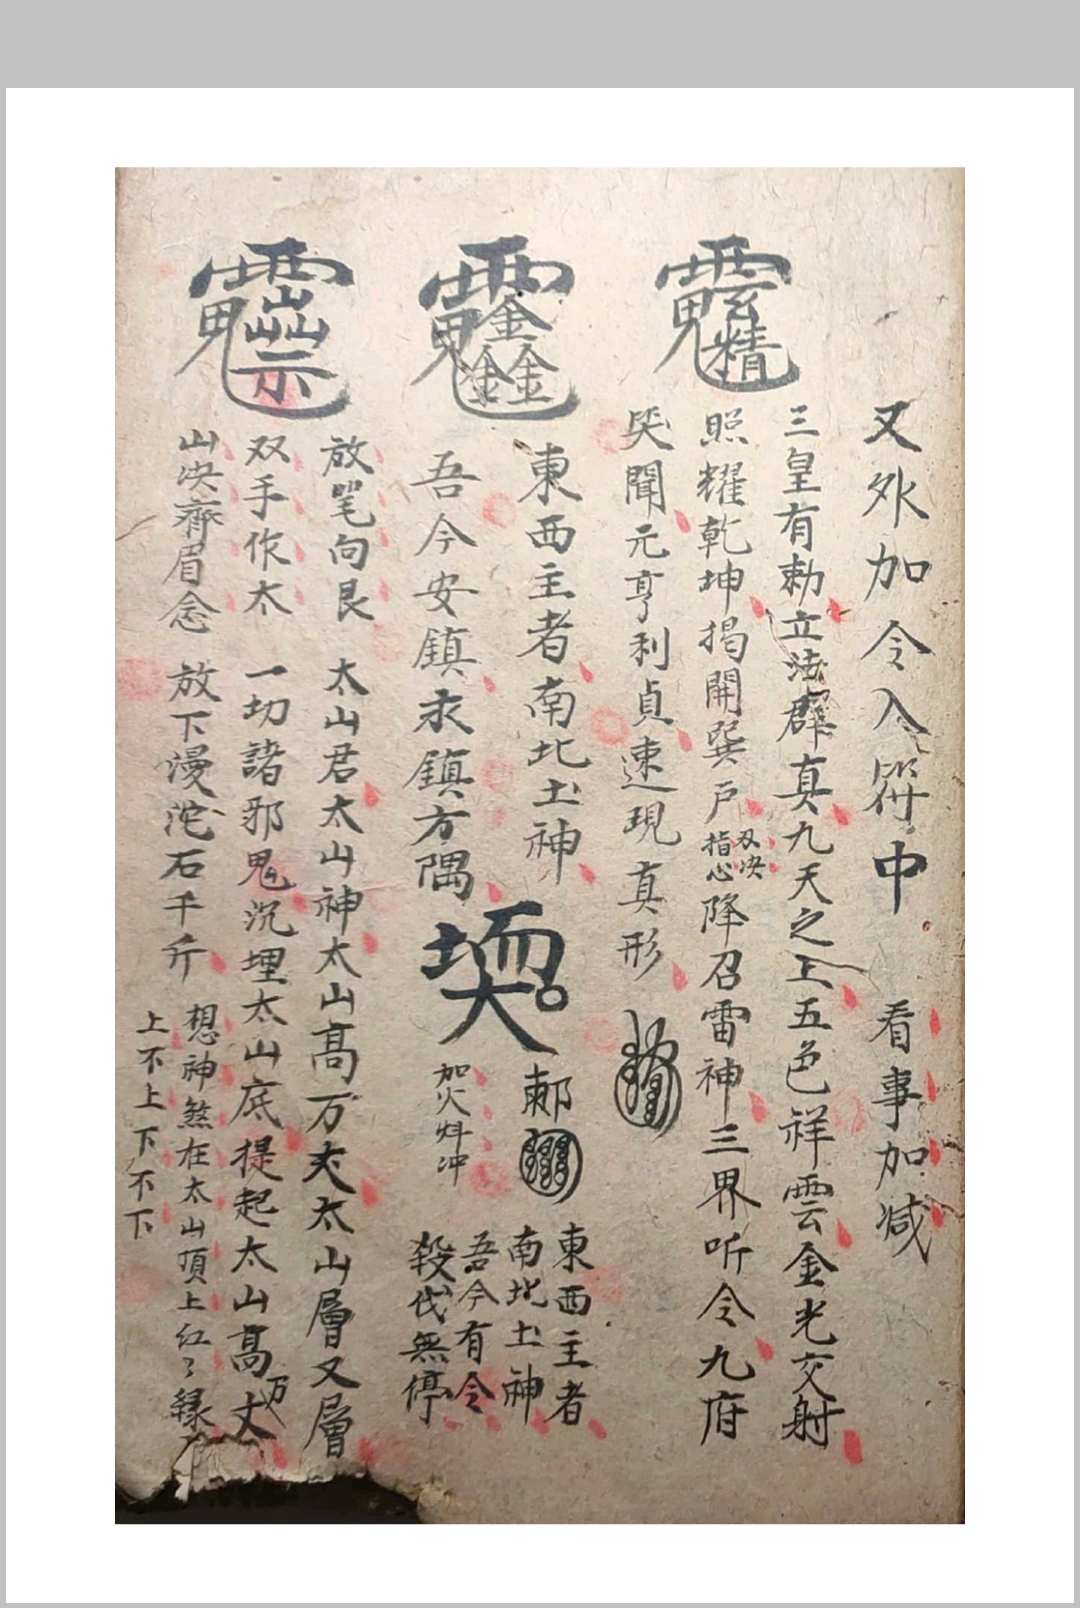 又外加令入符中 看事加减
三皇有勅立法群真九天之上五色祥雲金光交射
照耀乾坤揭開巽户
刄决
指心
降召雷神三界听令九府
聞元亨利貞速現真形
東西主者南北土神
吾今安鎮永鎮方隅
加火斗冲
東西主者
南北土神
吾今有令
殺伐無停
放笔向艮
双手作太
山决齊眉念
太山君太山神太山高万丈太山層又層
一切諸邪鬼沉埋太山底提起太山高万丈
放下漫沱石千斤
想神煞在太山頂上紅々緑
上不上下不下